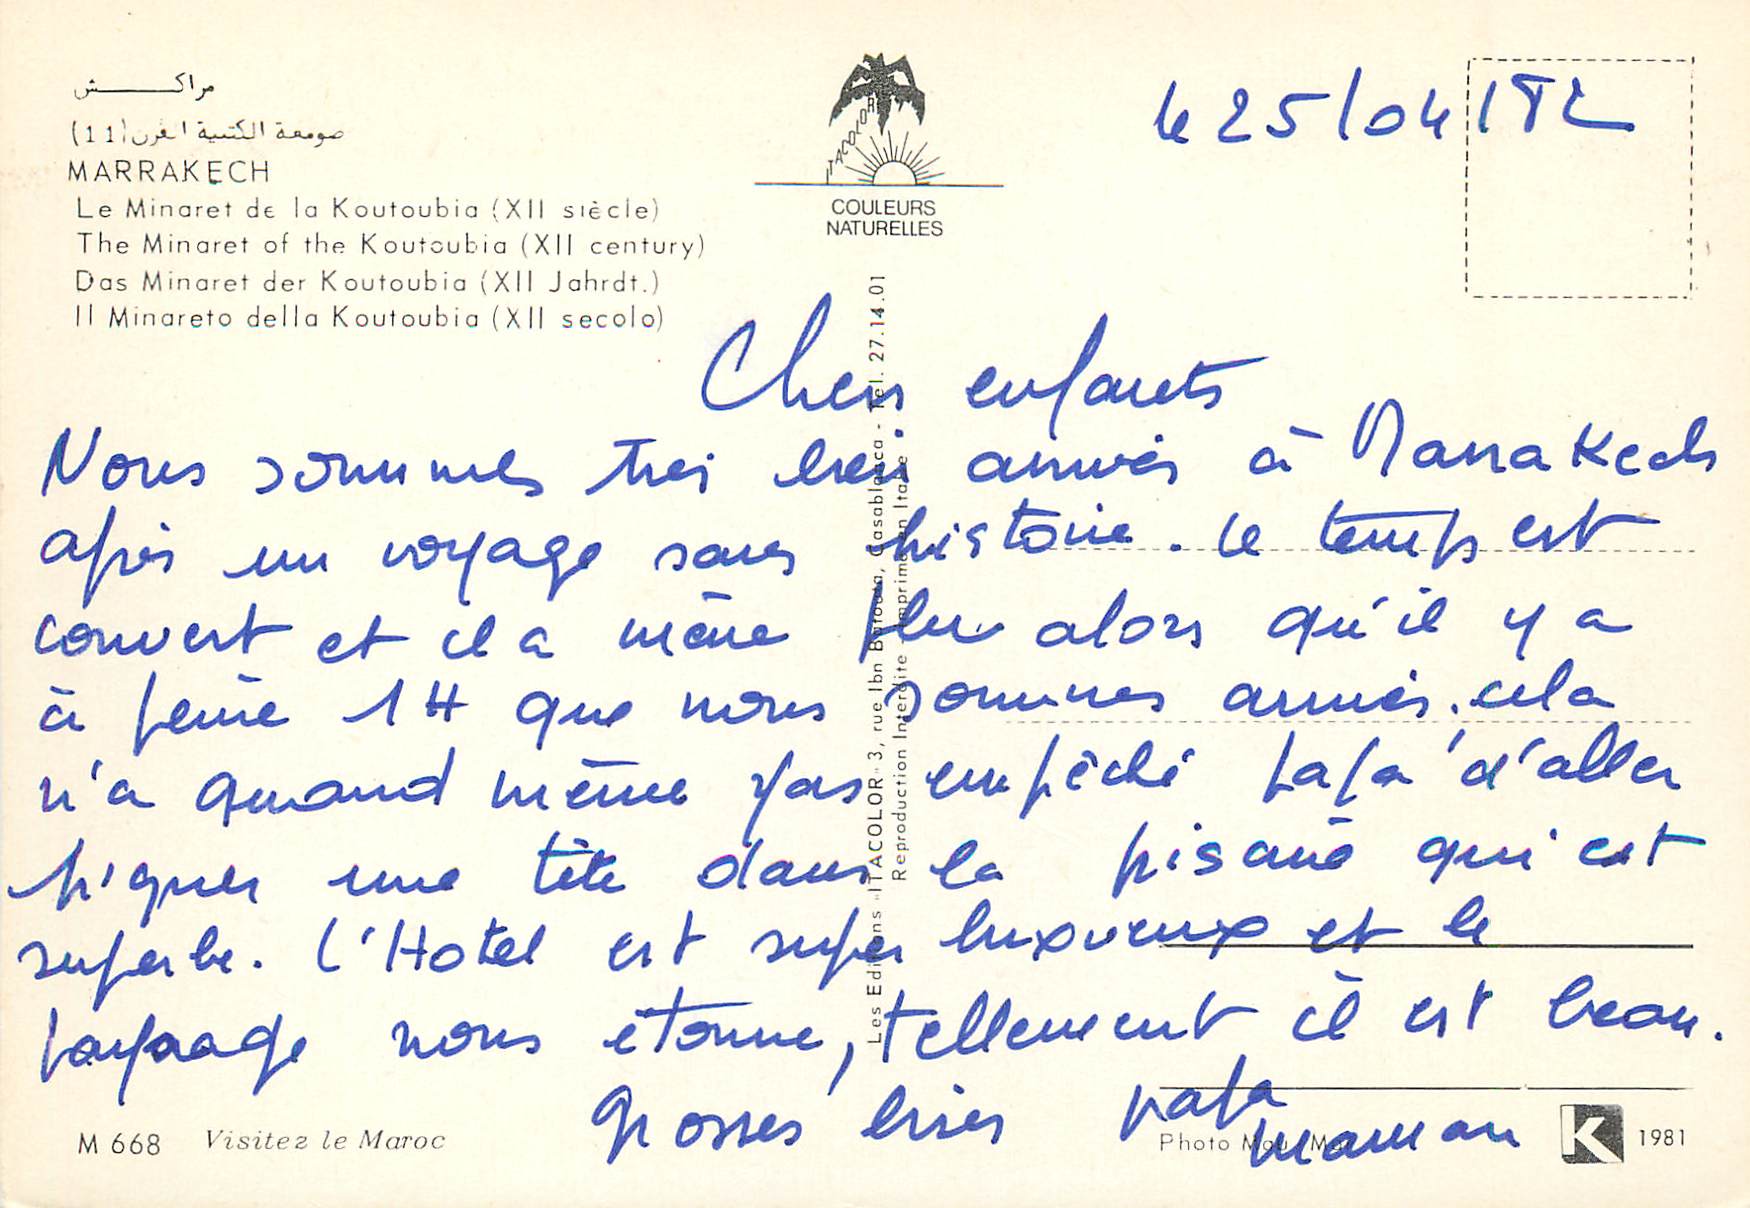 مراكـــش
صومعة الكتبية القرن (11)
MARRAKECH
Le Minaret de la Koutoubia (XII siècle)
The Minaret of the Koutoubia (XII century)
Das Minaret der Koutoubia (XII Jahrdt.)
Il Minareto della Koutoubia (XII secolo)
ITACOLOR
COULEURS
NATURELLES
le 25/04/82
Chers enfants
Nous sommes très bien arrivés à Marrakech
après un voyage sans histoire. le temps est
couvert et il a même plu alors qu'il y a
à peine 1H que nous sommes arrivés. cela
n'a quand même pas empêché papa d'aller
piquer une tête dans la piscine qui est
superbe. l'Hotel est super luxueux et le
paysage nous étonne, tellement il est beau.
Grosses bises papa
maman
Les Editions "ITACOLOR" 3, rue Ibn Batouta, Casablanca - Tel. 27.14.01
Reproduction Interdite - Imprimé en Italie
M 668 Visitez le Maroc
Photo
K 1981